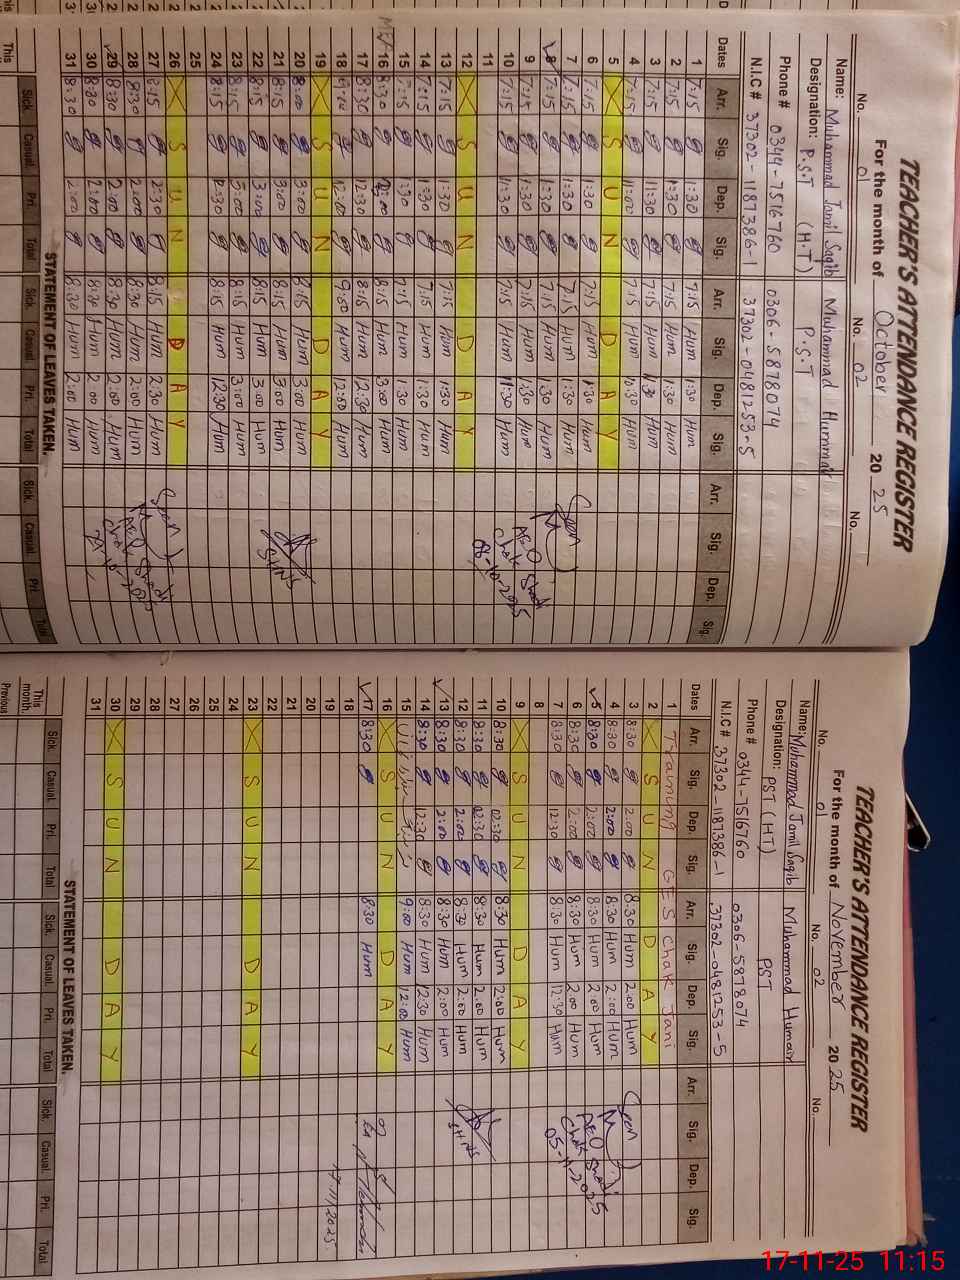 TEACHER'S ATTENDANCE REGISTER
For the month of October 2025
No. 01 No. 02 No.
Name: Muhammad Jamil Saqib Muhammad Humair
Designation: P.S.T (H.T) P.S.T
Phone # 0344-7516760 0306-5878074
N.I.C # 37302-1187386-1 37302-0481253-5
Dates Arr. Sig. Dep. Sig. Arr. Sig. Dep. Sig. Arr. Sig. Dep. Sig.
1 7:15 1:30 7:15 Hum 1:30 Hum
2 7:15 1:30 7:15 Hum 1:30 Hum
3 7:15 11:30 7:15 Hum 11:30 Hum
4 7:15 11:00 7:15 Hum 10:30 Hum
5 S U N D A Y
6 7:15 1:30 7:15 Hum 1:30 Hum
7 7:15 1:30 7:15 Hum 1:30 Hum
8 7:15 1:30 7:15 Hum 1:30 Hum
9 7:15 1:30 7:15 Hum 1:30 Hum
10 7:15 11:30 7:15 Hum 11:30 Hum
11
12 S U N D A Y
13 7:15 1:30 7:15 Hum 1:30 Hum
14 7:15 1:30 7:15 Hum 1:30 Hum
15 7:15 1:30 7:15 Hum 1:30 Hum
16 8:30 8:15 Hum 3:00 Hum
17 8:30 12:30 8:15 Hum 12:30 Hum
18 12:00 9:00 Hum 12:00 Hum
19 S U N D A Y
20 8:00 3:00 8:15 Hum 3:00 Hum
21 8:15 3:00 8:15 Hum 3:00 Hum
22 8:15 3:00 8:15 Hum 3:00 Hum
23 8:15 3:00 8:15 Hum 3:00 Hum
24 8:15 12:30 8:15 Hum 12:30 Hum
25
26 S U N D A Y
27 8:15 2:30 8:15 Hum 2:30 Hum
28 8:30 2:00 8:30 Hum 2:00 Hum
29 8:30 2:00 8:30 Hum 2:00 Hum
30 8:30 2:00 8:30 Hum 2:00 Hum
31 8:30 2:00 8:30 Hum 2:00 Hum
Seen
AEO
Chak Shadi
06-10-2025
SHNS
Seen
AEO
Chak Shadi
STATEMENT OF LEAVES TAKEN.
Sick. Casual. Pri. Total Sick. Casual. Pri. Total Sick. Casual. Pri. Total
This
TEACHER'S ATTENDANCE REGISTER
For the month of November 2025
No. 01 No. 02 No.
Name: Muhammad Jamil Saqib Muhammad Humair
Designation: PST (HT) PST
Phone # 0344-7516760 0306-5878074
N.I.C # 37302-1187386-1 37302-0481253-5
Dates Arr. Sig. Dep. Sig. Arr. Sig. Dep. Sig. Arr. Sig. Dep. Sig.
1 Training GES Chak Jani
2 S U N D A Y
3 8:30 2:00 8:30 Hum 2:00 Hum
4 8:30 2:00 8:30 Hum 2:00 Hum
5 8:30 2:00 8:30 Hum 2:00 Hum
6 8:30 2:00 8:30 Hum 2:00 Hum
7 8:30 12:30 8:30 Hum 12:30 Hum
8
9 S U N D A Y
10 8:30 02:30 8:30 Hum 2:00 Hum
11 8:30 02:30 8:30 Hum 2:00 Hum
12 8:30 2:00 8:30 Hum 2:00 Hum
13 8:30 2:00 8:30 Hum 2:00 Hum
14 8:30 12:30 8:30 Hum 12:30 Hum
15 9:00 Hum 12:00 Hum
16 S U N D A Y
17 8:30 8:30 Hum
18
19
20
21
22
23 S U N D A Y
24
25
26
27
28
29
30 S U N D A Y
31
Seen
AEO
Chak Shadi
05-11-2025
SHNS
17/11/2025
STATEMENT OF LEAVES TAKEN.
Sick. Casual. Pri. Total Sick. Casual. Pri. Total Sick. Casual. Pri. Total
This month.
Previous
17-11-25 11:15